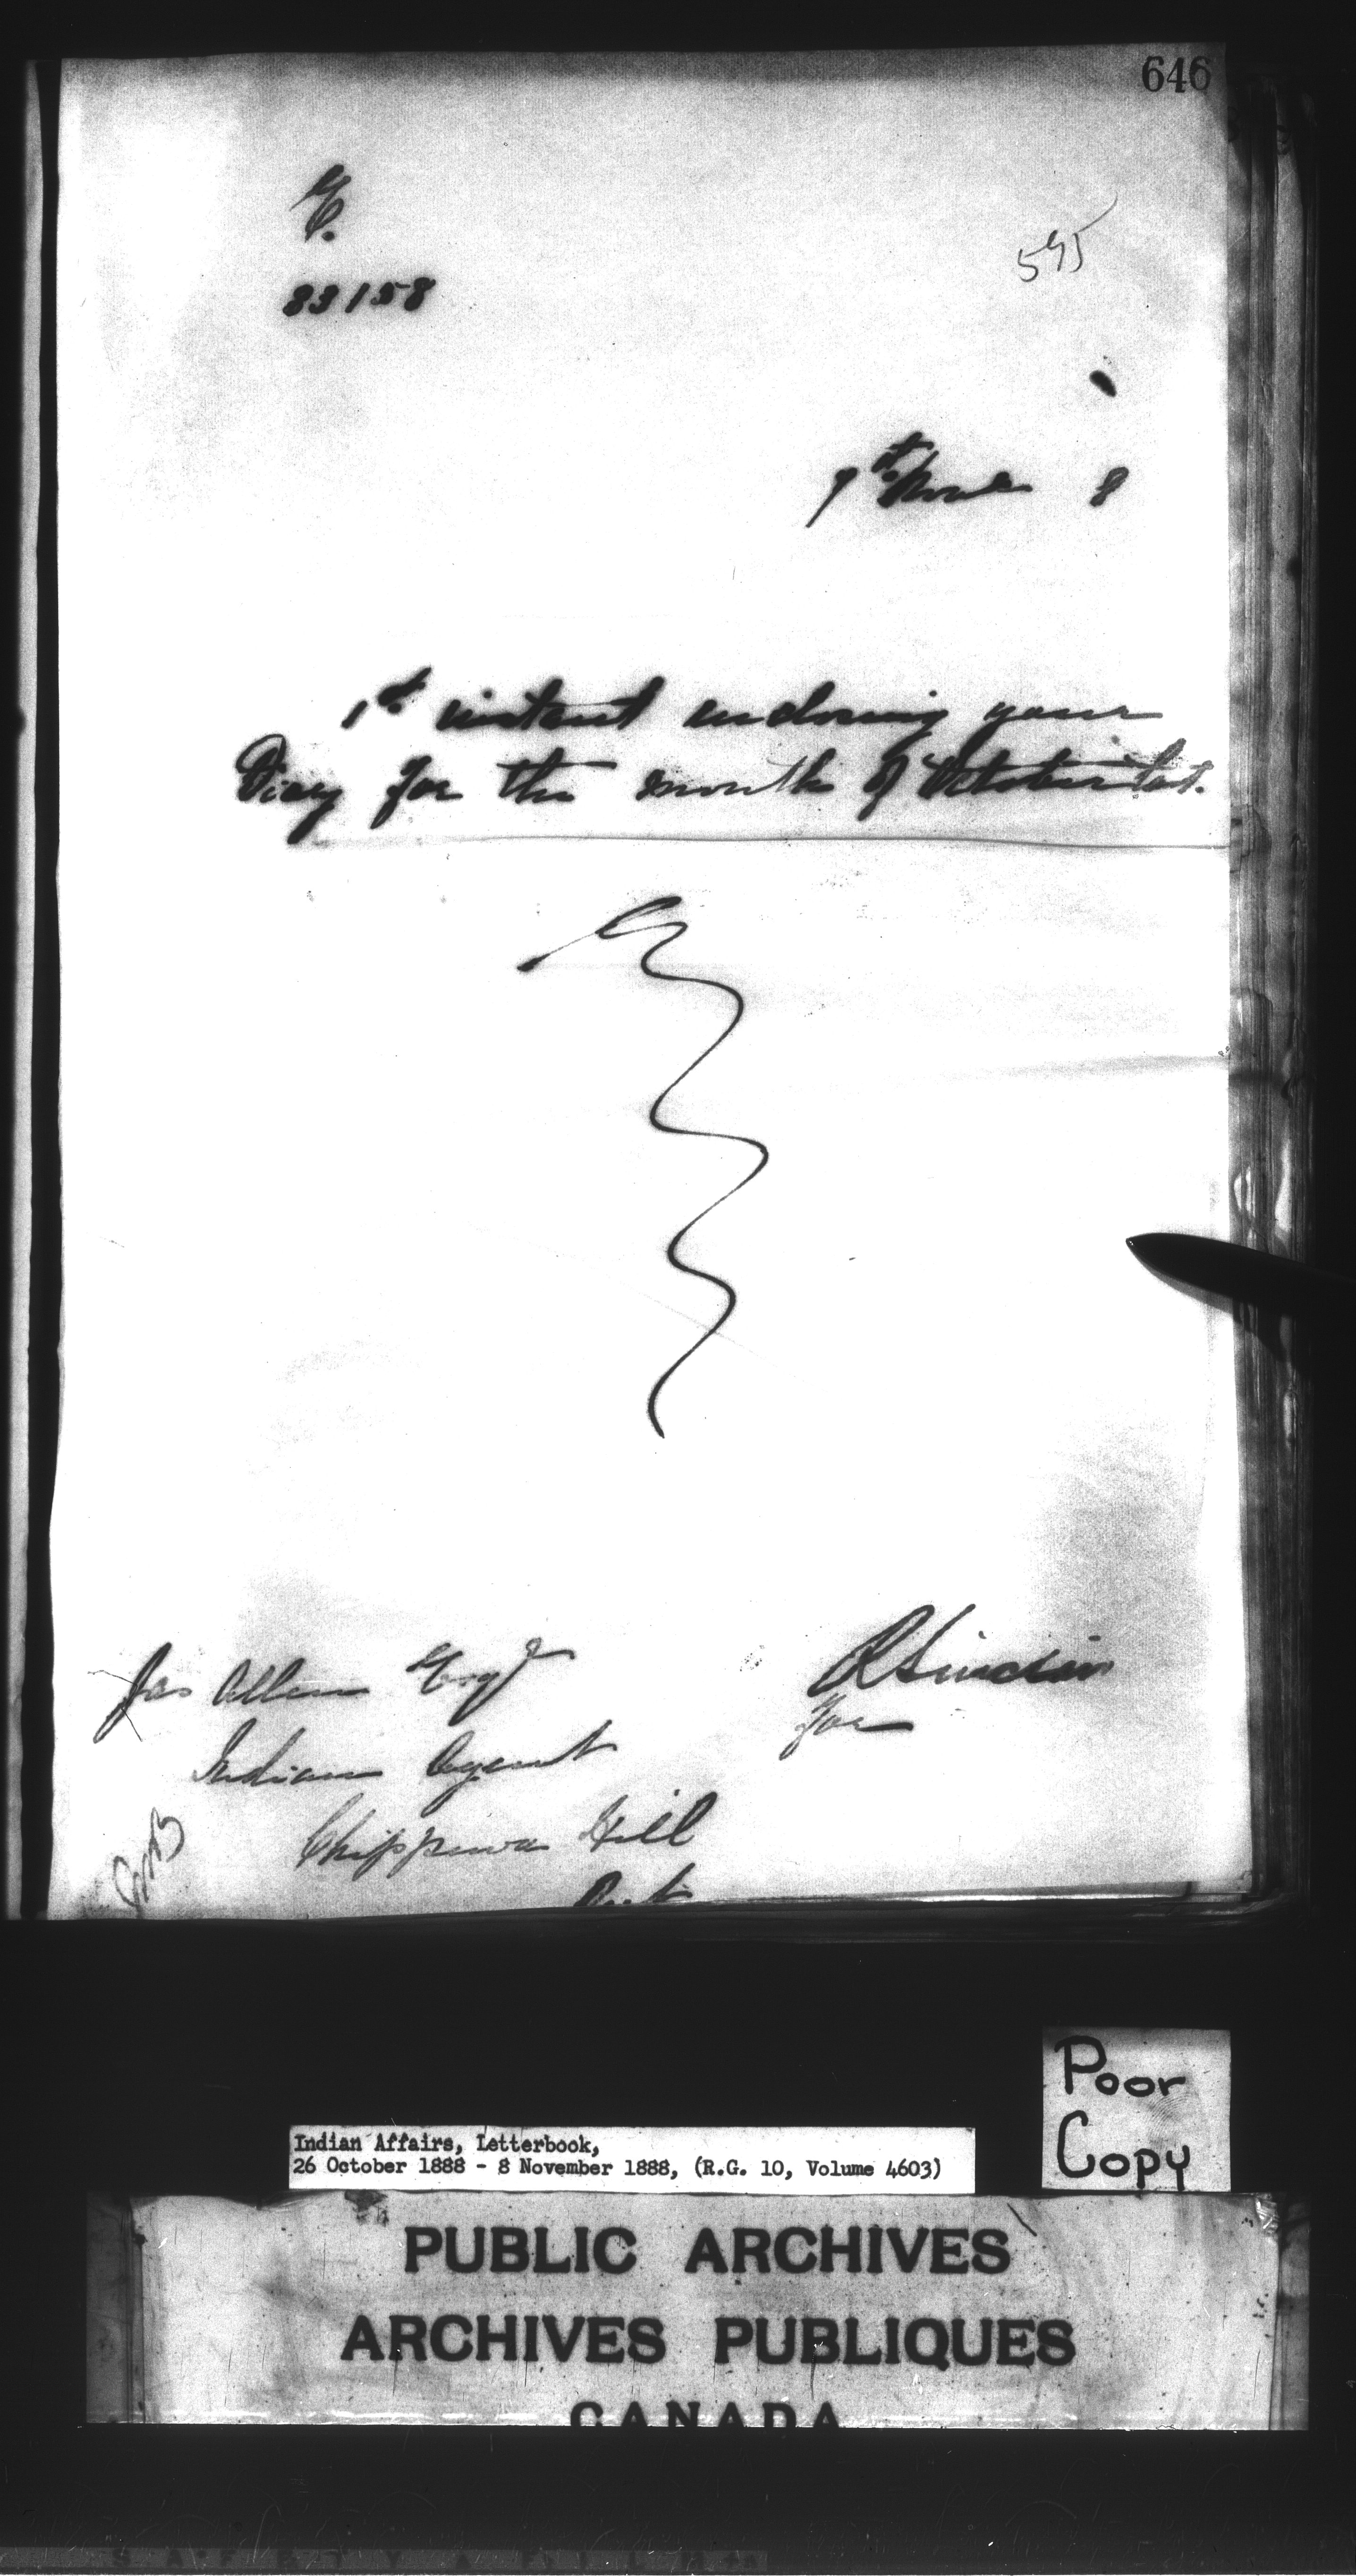 646
83158
7th Novr 8
1st instant enclosing your
Diary for the month of October last.
Jas Allen Esqr
R Sinclair
for
Indian Agent
Chippewa Hill
Ont
Poor
Copy
Indian Affairs, Letterbook,
26 October 1888 - 8 November 1888, (R.G. 10, Volume 4603)
PUBLIC ARCHIVES
ARCHIVES PUBLIQUES
CANADA